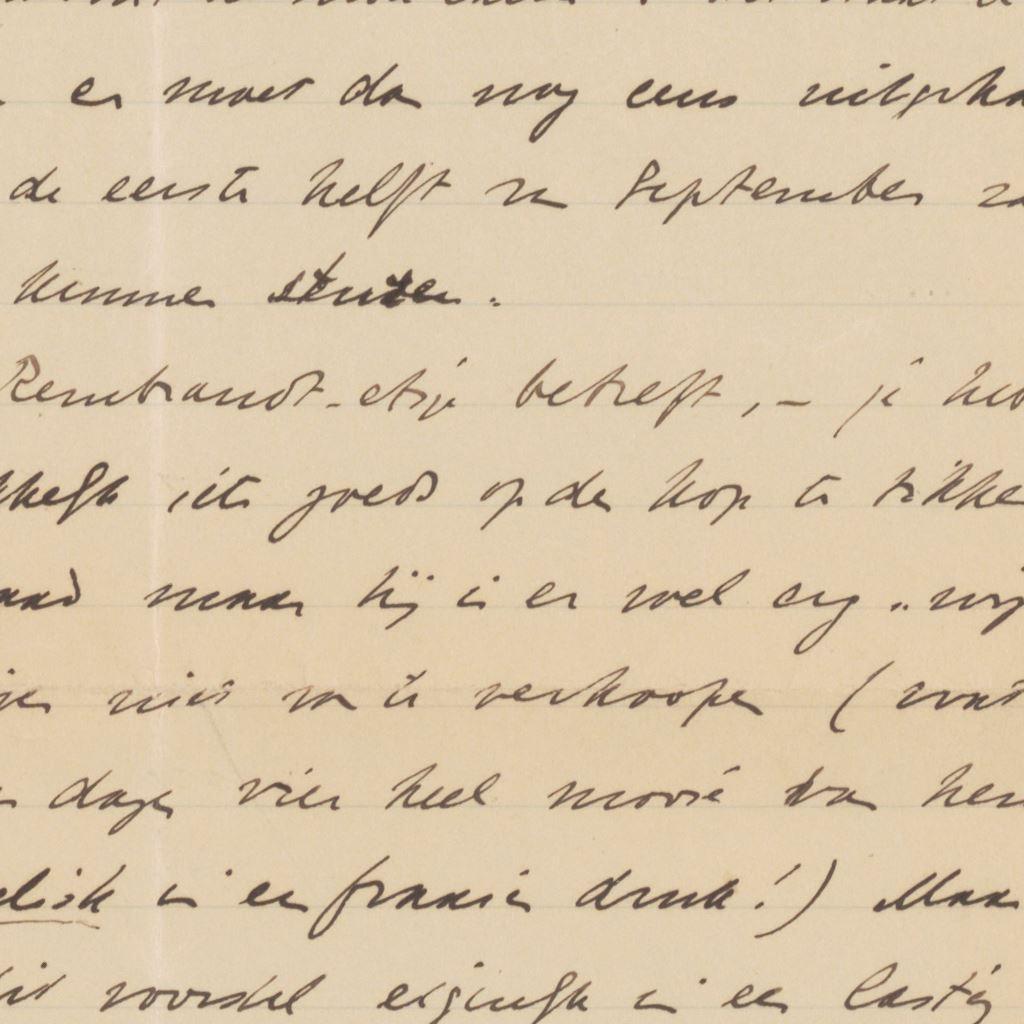 er moet dan nog eens
de eerste helft van September
kunnen sturen.
Rembrandt-etsje betreft, – je
iets goeds op de kop te tikken
maar hij is er wel erg
niet van te verkoopen (want
dagen vier heel mooie van hem
is een fraaien druk!) Maar
voorstel eigenlijk is een lastig